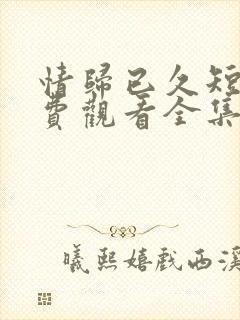 情歸已久短
費觀看全集
曦熙嬉戲西溪